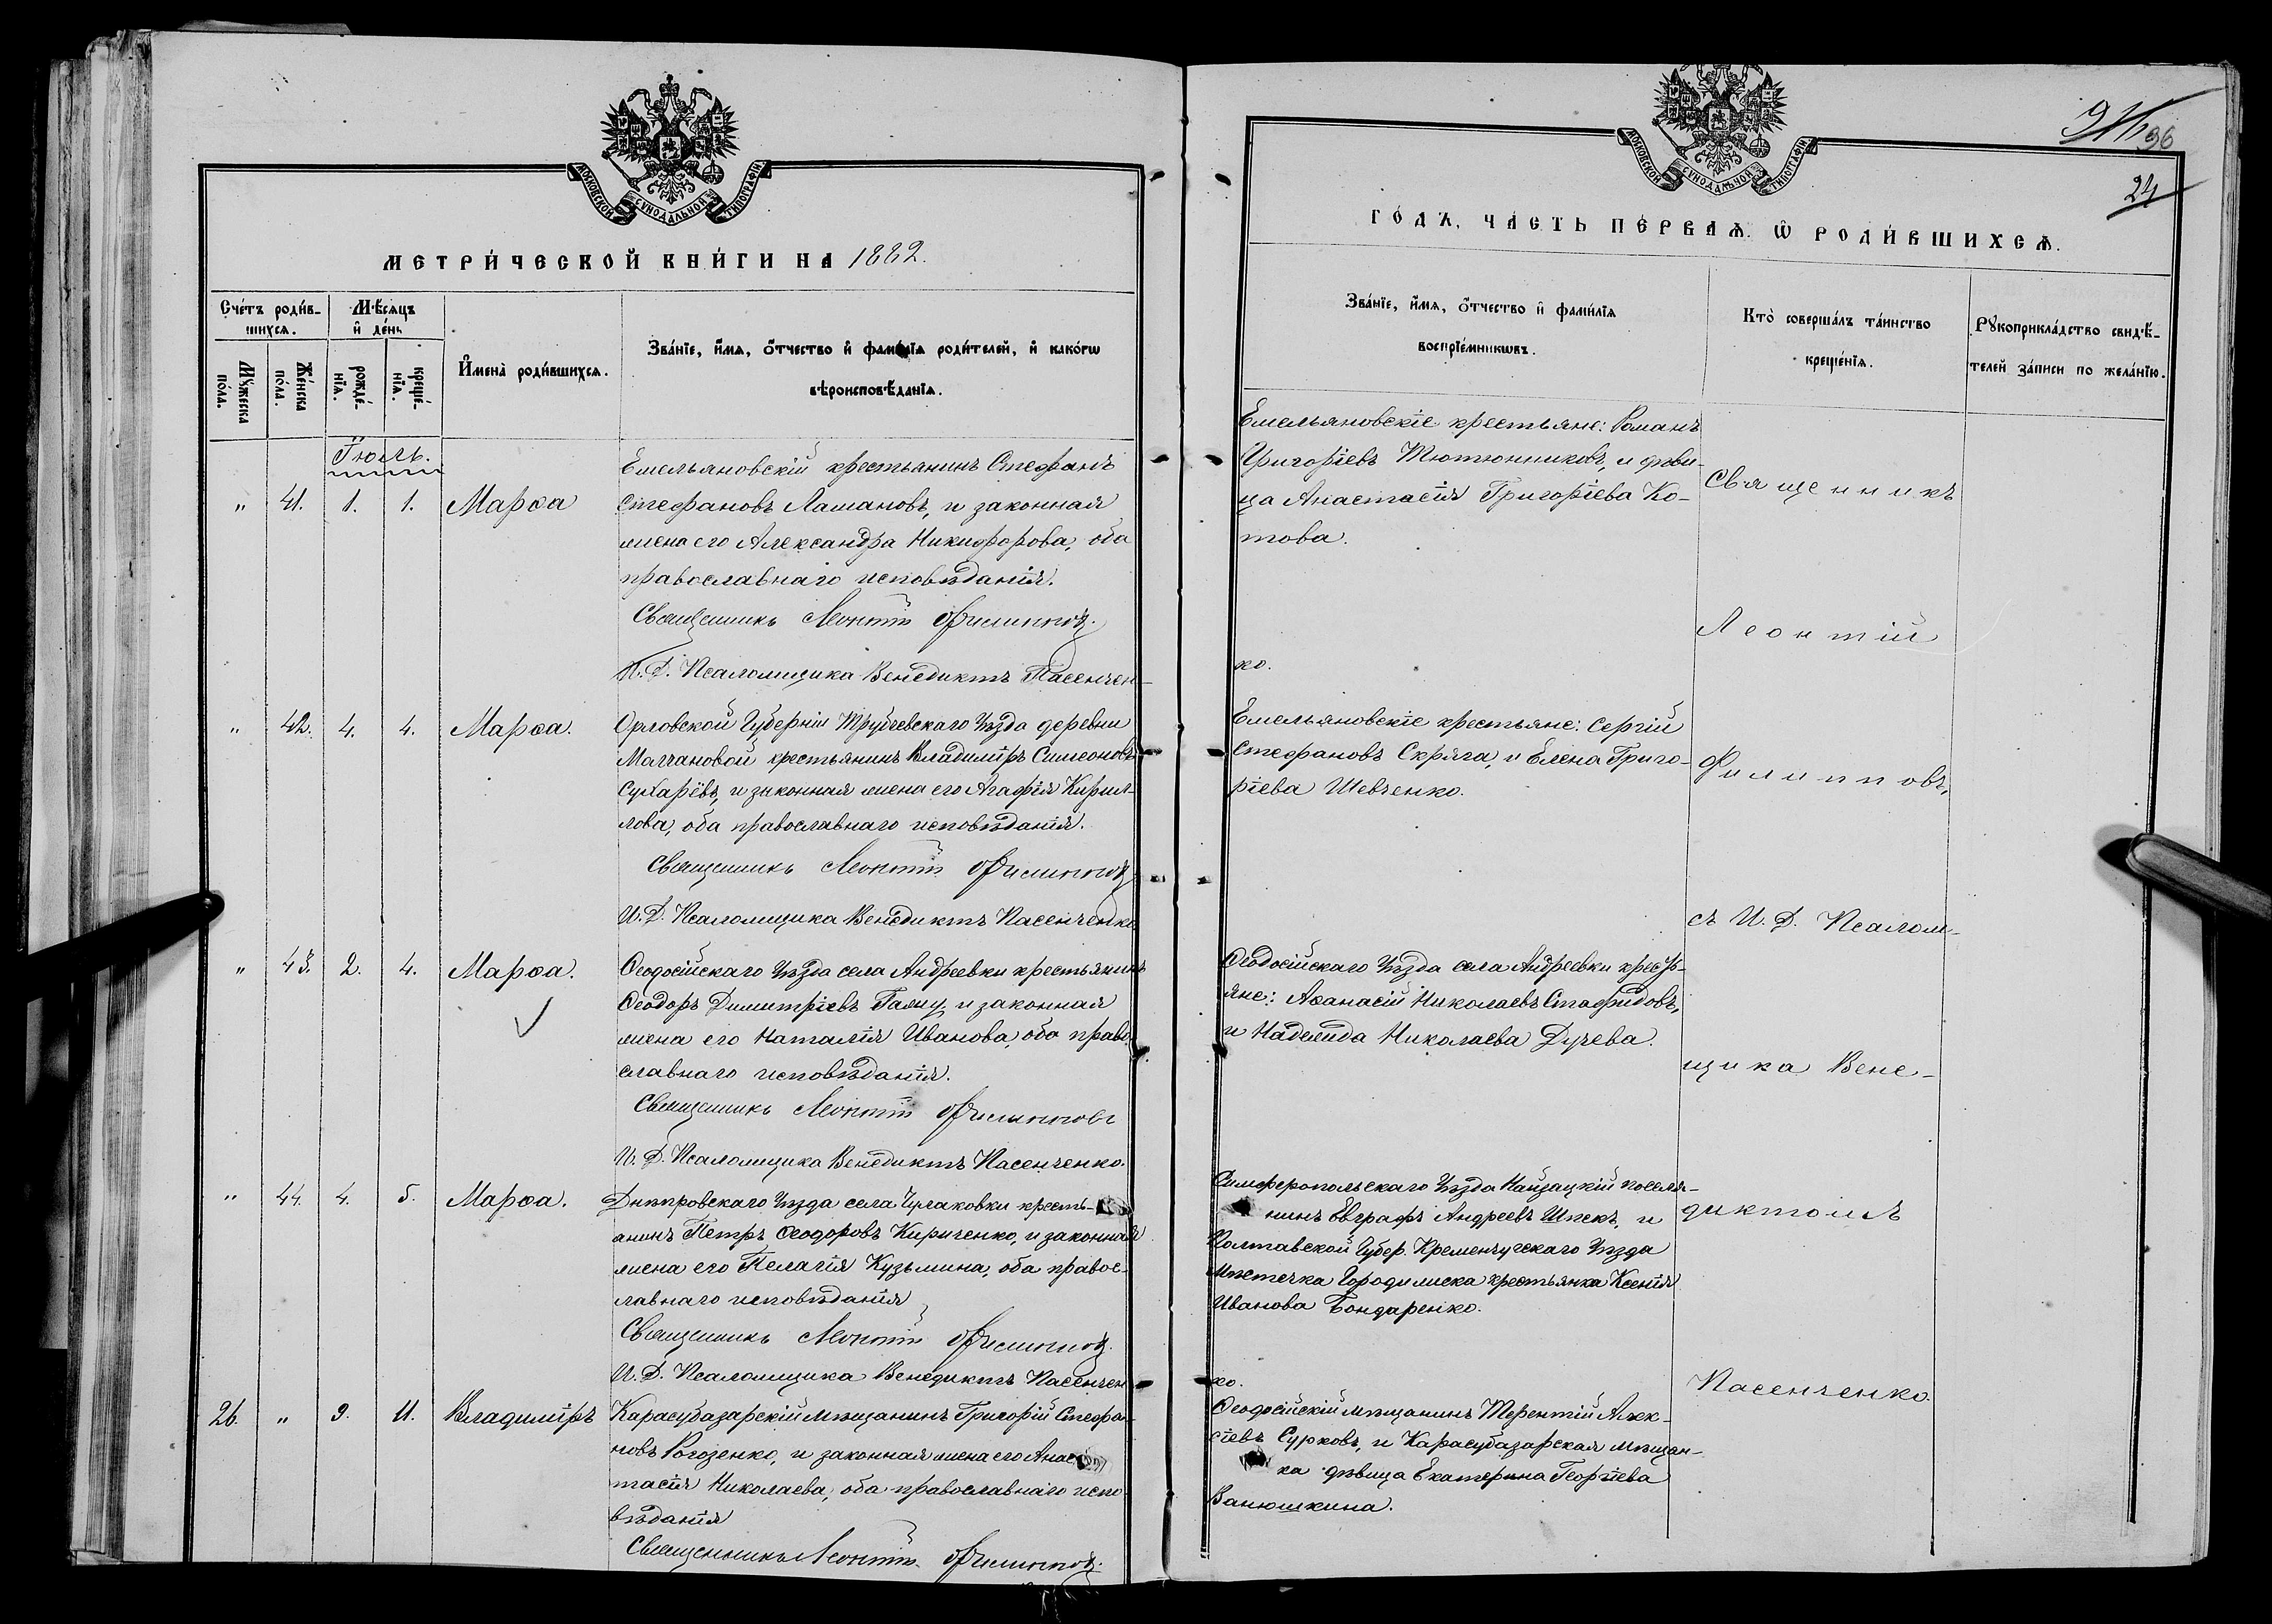 МОСКОВСКОЙ СУНОДАЛЬНОЙ ТИПОГРАФІИ
МЕТРИ́ЧЕСКОЙ КНИ́ГИ НА 1882.
Сче́тъ роди́в-
шихся.
Мѣ́сяцъ
и҆ де́нь
Мꙋ́жеска
по́ла.
Же́нска
по́ла.
рожде́-
нїѧ.
креще́-
нїѧ.
И҆мена̀ роди́вшихсѧ.
Зва́нїе, и҆́мѧ, ѻ҆́тчество и҆ фами́лїѧ роди́телей, и҆ како́гѡ
вѣроисповѣ́данїѧ.
Іюль.
" 41. 1. 1. Марѳа
Емельяновскій крестьянинъ Стефанъ
Стефановъ Лашановъ, и законная
жена его Александра Никифорова, оба
православнаго исповѣданія.
Священникъ Леонтій Филипповъ.
И. Д. Псаломщика Венедиктъ Пасенчен-
" 42. 4. 4. Марѳа.
Орловской Губерніи Трубчевскаго Уѣзда деревни
Малчановой крестьянинъ Владиміръ Симеоновъ
Сухарёвъ, и законная жена его Агафія Кирил-
лова, оба православнаго исповѣданія.
Священникъ Леонтій Филипповъ
И. Д. Псаломщика Венедиктъ Пасенченко
" 43. 2. 4. Марѳа.
Ѳеодосійскаго Уѣзда села Андреевки крестьянинъ
Ѳеодоръ Димитріевъ Галиу, и законная
жена его Наталія Иванова, оба право-
славнаго исповѣданія.
Священникъ Леонтій Филипповъ
И. Д. Псаломщика Венедиктъ Пасенченко.
" 44. 4. 5. Марѳа.
Днѣпровскаго Уѣзда села Чулаковки кресть-
янинъ Петръ Ѳеодоровъ Кириченко, и законная
жена его Пелагія Кузьмина, оба правос-
лавнаго исповѣданія
Священникъ Леонтій Филипповъ.
И. Д. Псаломщика Венедиктъ Пасенчен
26. " 9. 11. Владиміръ
Карасубазарскій мѣщанинъ Григорій Стефа-
новъ Рогозенко, и законная жена его Анас
тасія Николаева, оба православнаго испо
вѣданія
Священникъ Леонтій Филипповъ.
96
24
МОСКОВСКОЙ СУНОДАЛЬНОЙ ТИПОГРАФІИ
ГО́ДЪ, ЧА́СТЬ ПЕ́РВАѦ Ѡ҆ РОДИ́ВШИХСѦ.
Зва́нїе, и҆́мѧ, ѻ҆́тчество и҆ фами́лїѧ
воспрїе́мникѡвъ.
Кто̀ соверша́лъ та́инство
креще́нїѧ.
Рꙋкоприкла́дство свидѣ́-
телей за́писи по жела́нїю.
Емельяновскіе крестьяне: Романъ
Григоріевъ Тютюнниковъ, и дѣви-
ца Анастасія Григоріева Ко-
това.
ко.
Емельяновскіе крестьяне: Сергій
Стефановъ Скряга, и Елена Григо-
ріева Шевченко.
Ѳеодосійскаго Уѣзда села Андреевки кресть-
яне: Аѳанасій Николаевъ Стафидовъ,
и Надежда Николаева Дучева.
Симферопольскаго Уѣзда Найзацкій поселя-
нинъ Евграфъ Андреевъ Шпекъ, и
Полтавской Губер. Кременчугскаго Уѣзда
Мѣстечка Городижска крестьянка Ксенія
Иванова Бондаренко.
ко.
Ѳеодосійскій мѣщанинъ Терентій Алек-
сіевъ Сурковъ, и Карасубазарская мѣщан-
ка дѣвица Екатерина Георгіева
Ванюшкина.
Священникъ
Леонтій
Филипповъ,
съ И. Д. Псалом-
щика Вене-
диктомъ
Пасенченко.